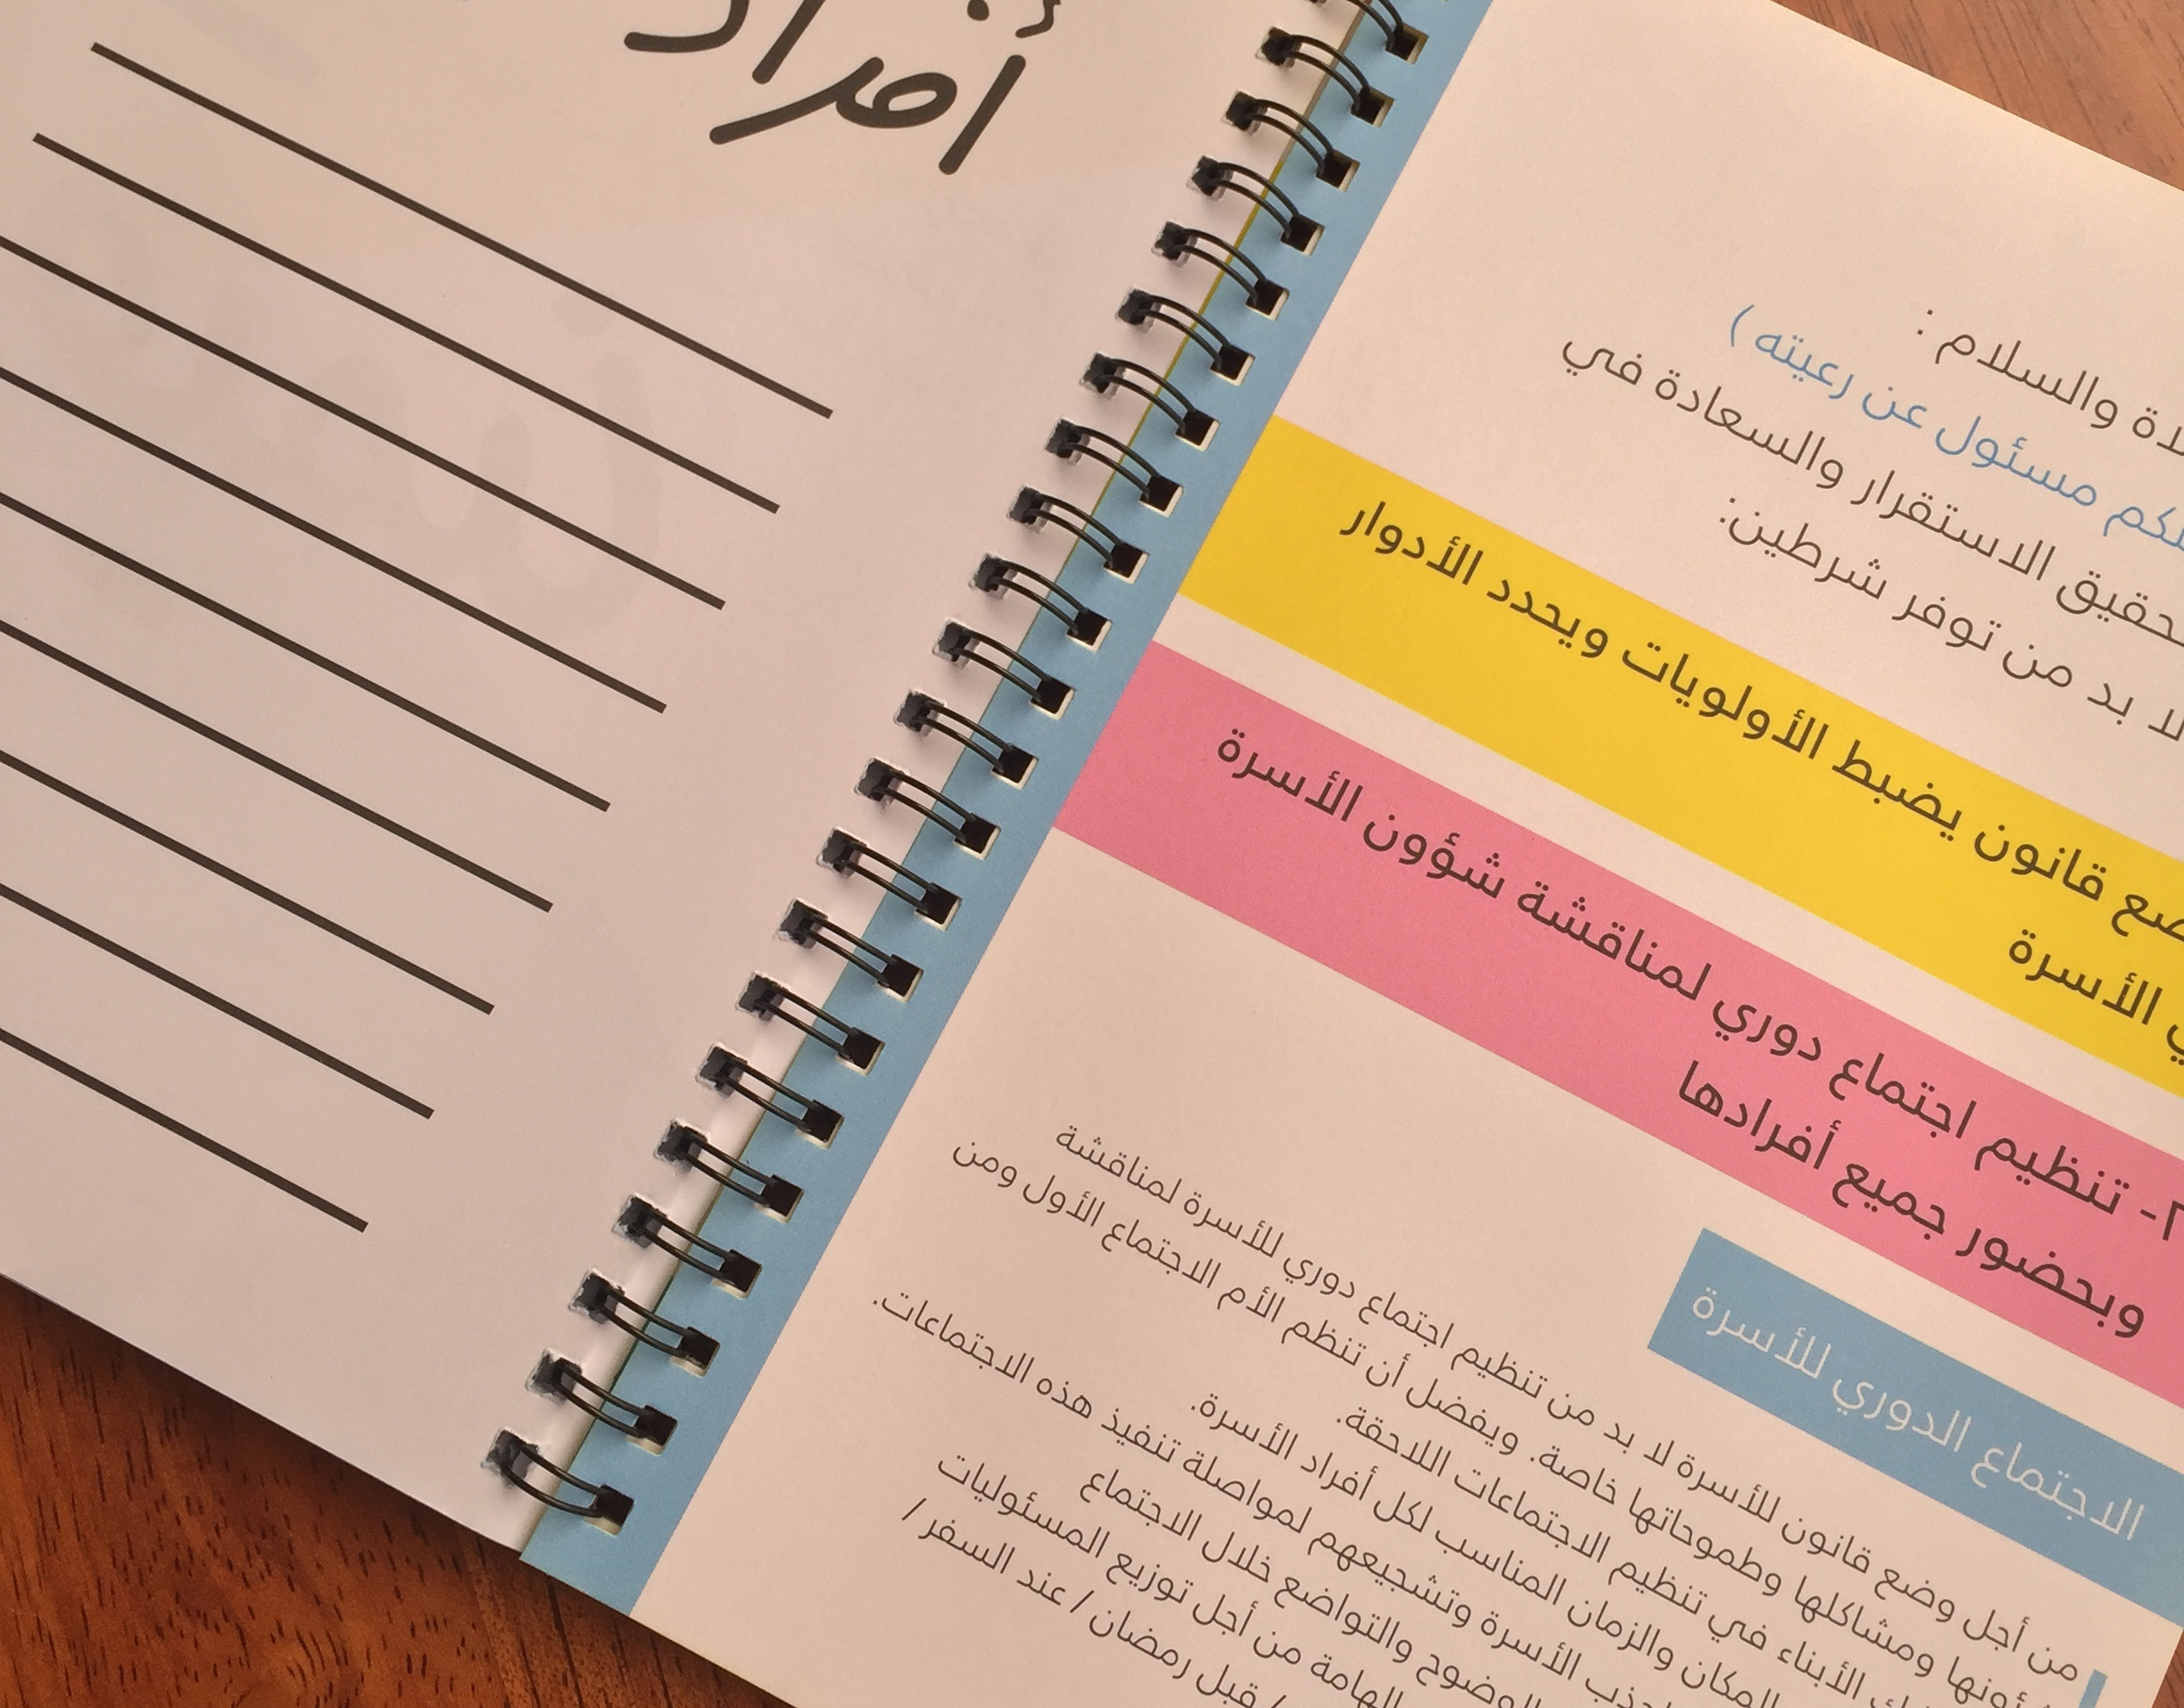 والسلام :
مسئول عن رعيته )
الاستقرار والسعادة في
لا بد من توفر شرطين:
قانون يضبط الأولويات ويحدد الأدوار
الأسرة
٢- تنظيم اجتماع دوري لمناقشة شؤون الأسرة
وبحضور جميع أفرادها
الاجتماع الدوري للأسرة
من أجل وضع قانون للأسرة لا بد من تنظيم اجتماع دوري للأسرة لمناقشة
ومشاكلها وطموحاتها خاصة. ويفضل أن تنظم الأم الاجتماع الأول ومن
الأبناء في تنظيم الاجتماعات اللاحقة.
المكان والزمان المناسب لكل أفراد الأسرة.
الأسرة وتشجيعهم لمواصلة تنفيذ هذه الاجتماعات.
والتواضع خلال الاجتماع
الهامة من أجل توزيع المسئوليات
/ قبل رمضان / عند السفر /
أفراد